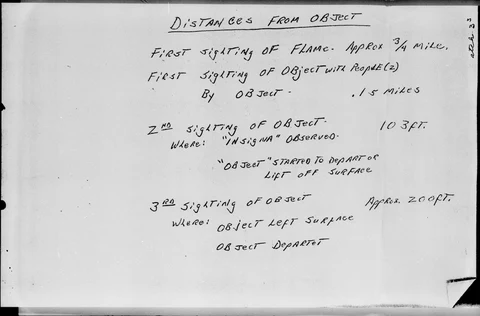 DISTANCES FROM OBJECT
FIRST SIGHTING OF FLAME. APPROX 3/4 MILE.
FIRST SIGHTING OF OBJECT WITH PEOPLE (2)
BY OBJECT - .15 MILES
2ND SIGHTING OF OBJECT. 103 FT.
WHERE: "INSIGNA" OBSERVED.
"OBJECT" STARTED TO DEPART OR
LIFT OFF SURFACE
3RD SIGHTING OF OBJECT APPROX. 200 FT.
WHERE: OBJECT LEFT SURFACE
OBJECT DEPARTET